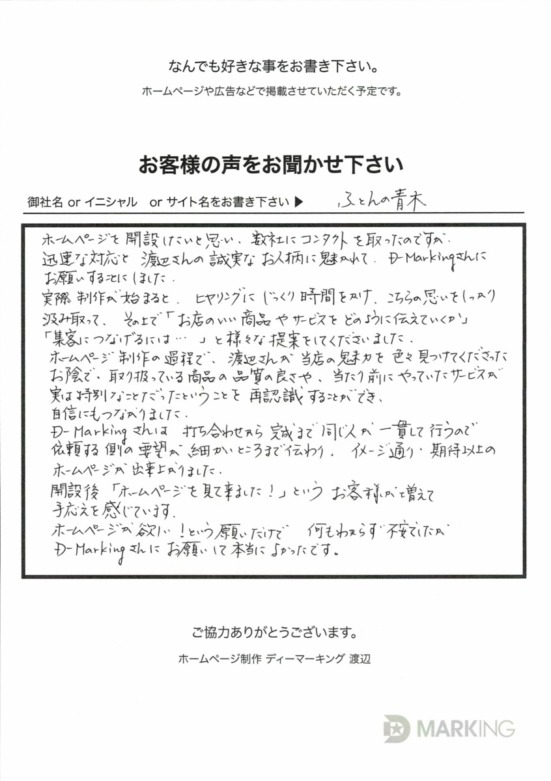 なんでも好きな事をお書き下さい。
ホームページや広告などで掲載させていただく予定です。
お客様の声をお聞かせ下さい
御社名 or イニシャル or サイト名をお書き下さい ▶ ふとんの青木
ホームページを開設したいと思い、数社にコンタクトを取ったのですが、
迅速な対応と渡辺さんの誠実なお人柄に魅かれて、D-Markingさんに
お願いすることにしました。
実際制作が始まると、ヒヤリングにじっくり時間をかけ、こちらの思いをしっかり
汲み取って、その上で「お店のいい商品やサービスをどのように伝えていくか」
「集客につなげるには…」と様々な提案をしてくださいました。
ホームページ制作の過程で、渡辺さんが当店の魅力を色々見つけてくださった
お陰で、取り扱っている商品の品質の良さや、当たり前にやっていたサービスが
実は特別なことだったということを再認識することができ、
自信にもつながりました。
D-Markingさんは打ち合わせから完成まで同じ人が一貫して行うので
依頼する側の要望が細かいところまで伝わり、イメージ通り・期待以上の
ホームページが出来上がりました。
開設後「ホームページを見て来ました!」というお客様が増えて
手応えを感じています。
ホームページが欲しい!という願いだけで 何もわからず不安でしたが
D-Markingさんにお願いして本当によかったです。
ご協力ありがとうございます。
ホームページ制作 ディーマーキング 渡辺
D MARKING